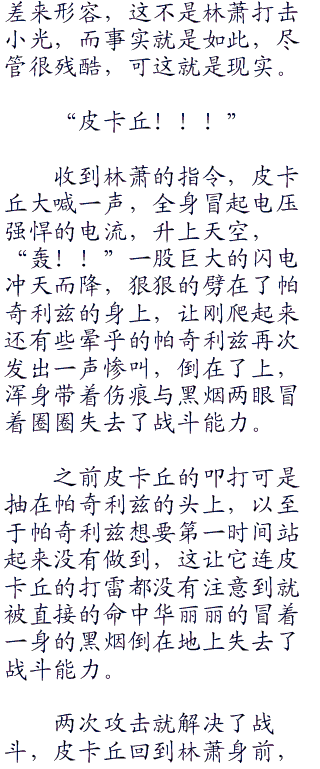 差来形容，这不是林萧打击
小光，而事实就是如此，尽
管很残酷，可这就是现实。
“皮卡丘！！！”
收到林萧的指令，皮卡
丘大喊一声，全身冒起电压
强悍的电流，升上天空，
“轰！！”一股巨大的闪电
冲天而降，狠狠的劈在了帕
奇利兹的身上，让刚爬起来
还有些晕乎的帕奇利兹再次
发出一声惨叫，倒在了上，
浑身带着伤痕与黑烟两眼冒
着圈圈失去了战斗能力。
之前皮卡丘的叩打可是
抽在帕奇利兹的头上，以至
于帕奇利兹想要第一时间站
起来没有做到，这让它连皮
卡丘的打雷都没有注意到就
被直接的命中华丽丽的冒着
一身的黑烟倒在地上失去了
战斗能力。
两次攻击就解决了战
斗，皮卡丘回到林萧身前，